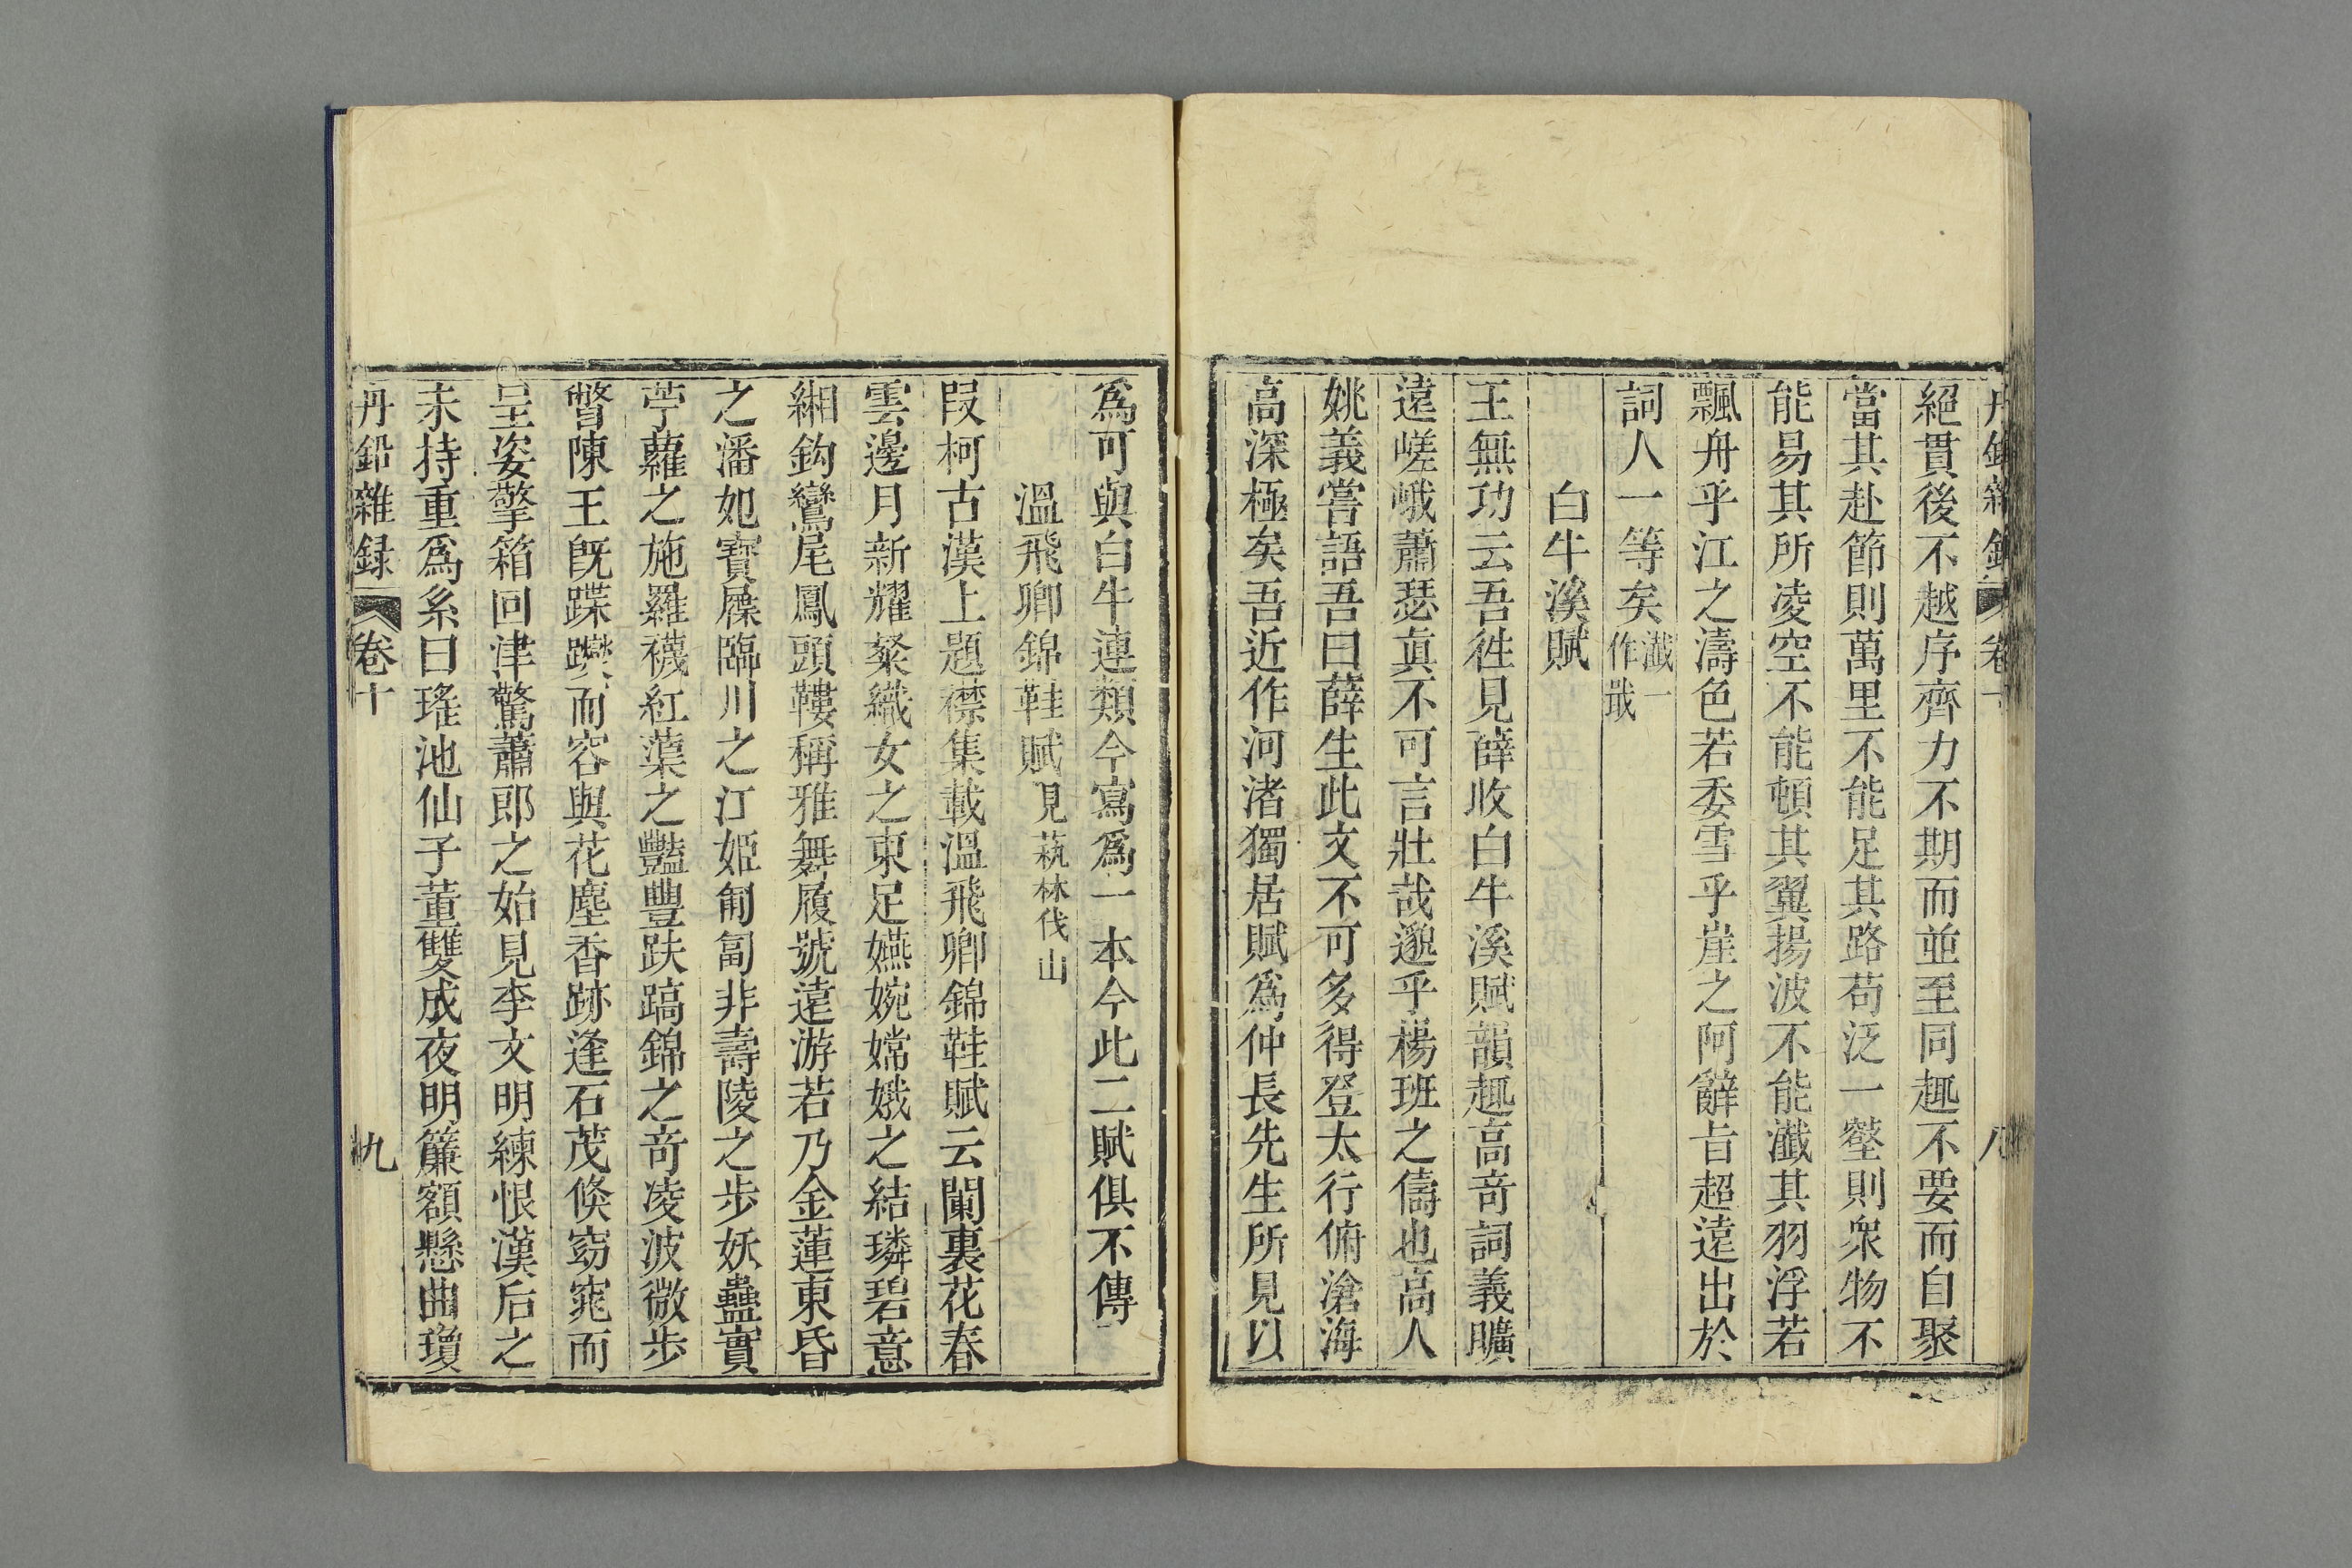 丹鉛雜錄 卷十 八
絕貫後不越序齊力不期而並至同趣不要而自聚
當其赴節則萬里不能足其路苟泛一壑則衆物不
能易其所凌空不能頓其翼揚波不能濈其羽浮若
飄舟乎江之濤色若委雪乎崖之阿辭旨超遠出於
詞人一等矣濈一作戢
白牛溪賦
王無功云吾徃見薛收白牛溪賦韻趣高竒詞義曠
遠嵯峨蕭瑟真不可言壯哉邈乎楊班之儔也高人
姚義嘗語吾曰薛生此文不可多得登太行俯滄海
高深極矣吾近作河渚獨居賦爲仲長先生所見以
爲可與白牛連類今寫爲一本今此二賦俱不傳
溫飛卿錦鞋賦見蓺林伐山
叚柯古漢上題襟集載溫飛卿錦鞋賦云闌裏花春
雲邊月新耀粲織女之束足嬿婉嫦娥之結璘碧意
緗鈎鸞尾鳳頭鞻稱雅舞履號遠游若乃金蓮東昏
之潘妃寶屧臨川之江姬匍匐非壽陵之步妖蠱實
苧蘿之施羅襪紅蕖之豔豐趺蹻錦之竒凌波微步
瞥陳王旣蹀躞而容與花塵香跡逢石茂倏窈窕而
呈姿擎箱回津驚蕭郎之始見李文明練恨漢后之
未持重爲糸曰瑤池仙子董雙成夜明簾額懸曲瓊
丹鉛雜録 卷十 九